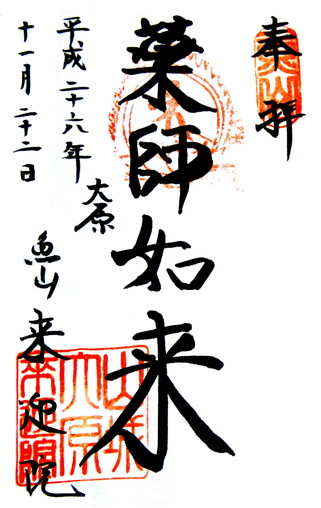 奉拝
薬師如来
大原
魚山 来迎院
平成二十六年
十一月二十二日